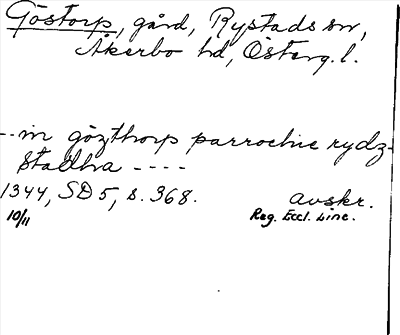 Göstorp, gård, Rystads sn,
Åkerbo hd, Österg. l.
-- in gözthorp parrochie rydz-
stadha ----
1344, SD 5, s. 368. avskr.
10/11 Reg. Eccl. Linc.